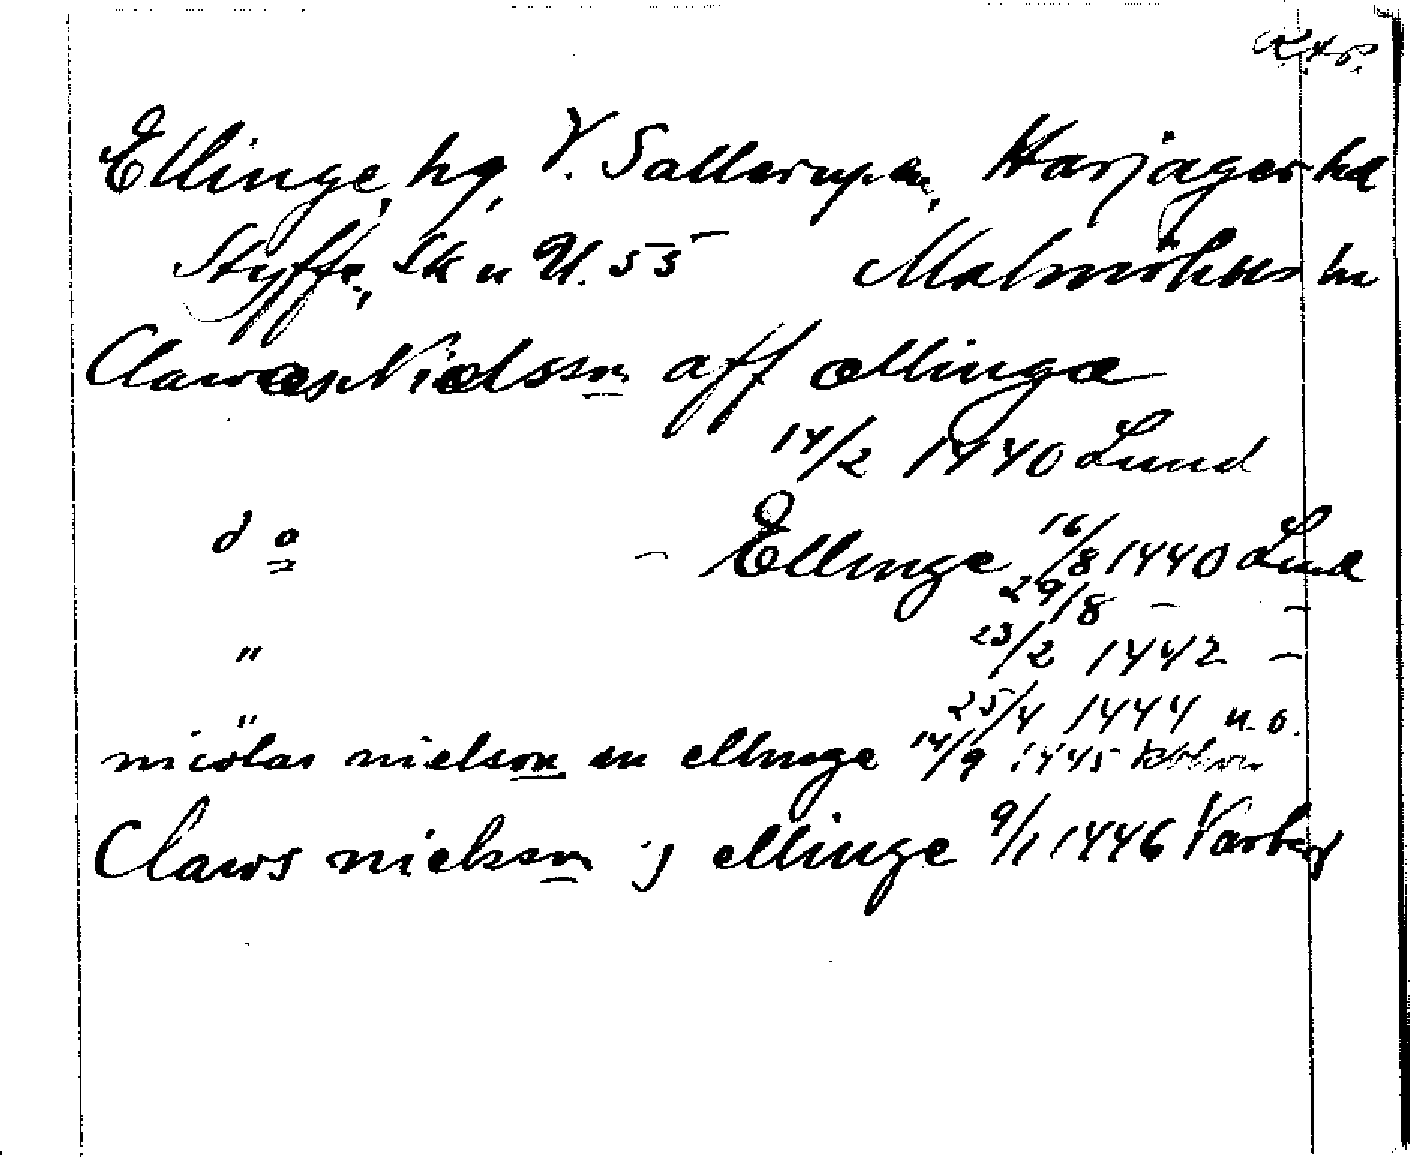 Ellinge, hg, V. Sallerups sn, Harjagers hd
Styffe, Sk u U. 55 Malmöhus ln
Clawæs Nielsson aff ællingæ
14/2 1440 Lund
d o - Ellinge 16/8 1440 Lund
29/8 - -
" 23/2 1442 -
" 25/4 1444 u.o.
nicolas nielson in ellinge 14/9 1445 Kbhvn
Claws nielson j ellinge 9/1 1446 Varberg